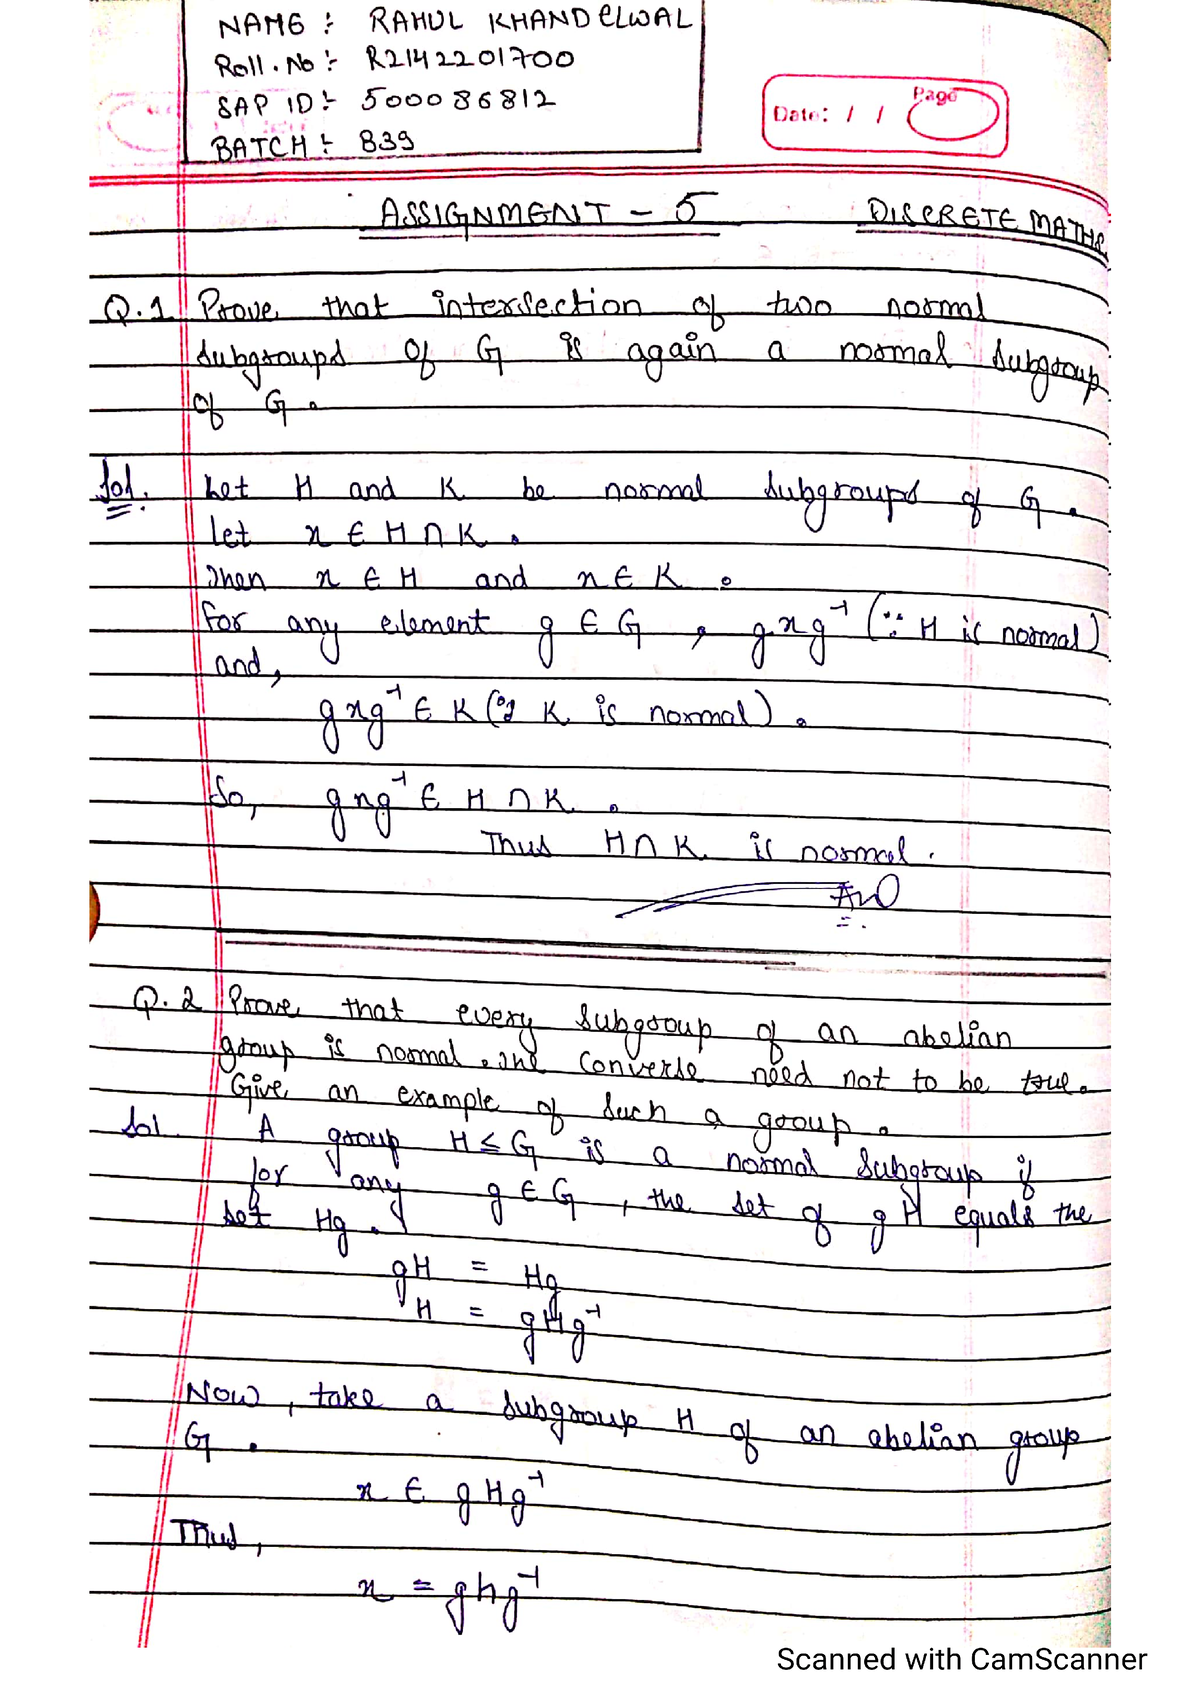 NAME :- RAHUL KHANDELWAL
Roll.No :- R2142201700
SAP ID :- 500086812
BATCH :- B39
Page
Date: / /
ASSIGNMENT - 5
DISCRETE MATHS
Q.1 Prove that intersection of two normal
subgroups of G is again a normal subgroup
of G.
Sol. Let H and K be normal subgroups of G.
let x ∈ H ∩ K.
Then x ∈ H and x ∈ K.
For any element g ∈ G, gxg⁻¹ (∵ H is normal)
and,
gxg⁻¹ ∈ K (∵ K is normal).
So, gxg⁻¹ ∈ H ∩ K.
Thus H ∩ K is normal.
Q.2 Prove that every subgroup of an abelian
group is normal. The converse need not to be true.
Give an example of such a group.
Sol. A group H ≤ G is a normal subgroup if
for any g ∈ G, the set of gH equals the
set Hg.
gH = Hg
H = gHg⁻¹
Now, take a subgroup H of an abelian group
G.
x ∈ gHg⁻¹
Thus,
x = ghg⁻¹
Scanned with CamScanner